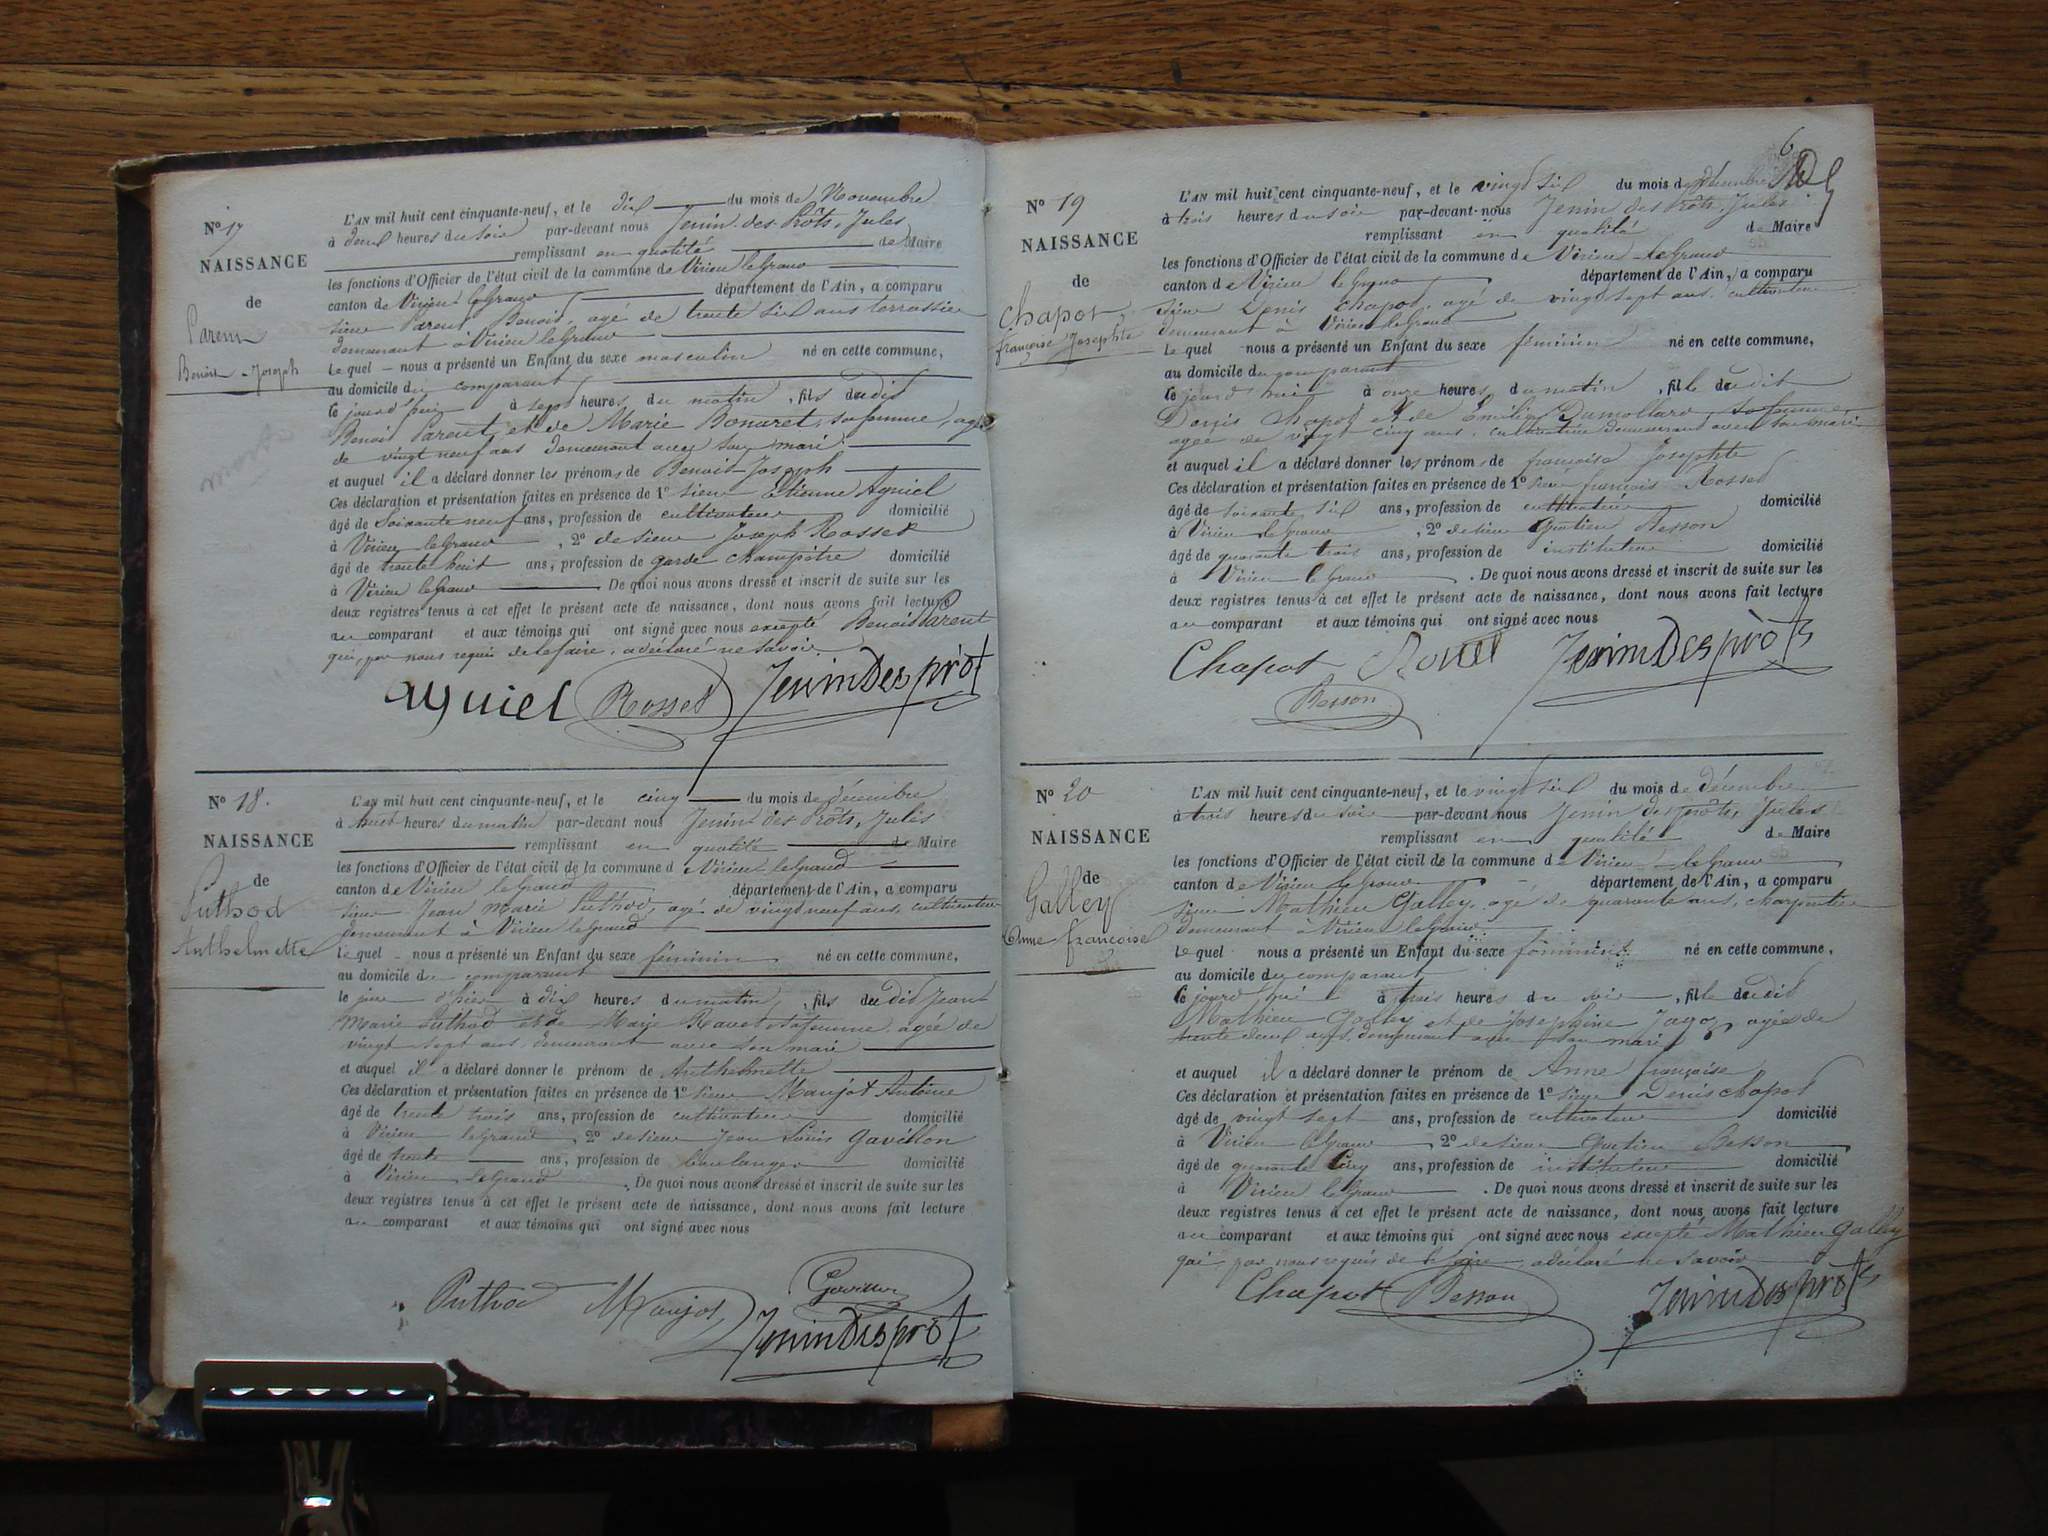 N° 17
NAISSANCE
de
Parent
Benoit-Joseph
L'AN mil huit cent cinquante-neuf, et le dix du mois de Novembre
à deux heures du soir par-devant nous Jenin des Prôts, Jules
remplissant en qualité de Maire
les fonctions d'Officier de l'état civil de la commune de Virieu le Grand
canton de Virieu le Grand département de l'Ain, a comparu
sieur Parent Benoit, agé de trente six ans terrassier
demeurant à Virieu le Grand
Lequel nous a présenté un Enfant du sexe masculin né en cette commune,
au domicile du comparant
ce jourd'hui à sept heures du matin, fils dudit
Benoit Parent et de Marie Bonaret, sa femme, agée
de vingt neuf ans demeurant avec son mari
et auquel il a déclaré donner les prénoms de Benoit-Joseph
Ces déclaration et présentation faites en présence de 1° sieur Etienne Ayniel
âgé de soixante neuf ans, profession de cultivateur domicilié
à Virieu le Grand, 2° de sieur Joseph Rosset
âgé de trente huit ans, profession de garde champêtre domicilié
à Virieu le Grand De quoi nous avons dressé et inscrit de suite sur les
deux registres tenus à cet effet le présent acte de naissance, dont nous avons fait lecture
au comparant et aux témoins qui ont signé avec nous excepté Benoit Parent
qui, par nous requis de le faire, a déclaré ne savoir
ayniel Rosset JeninDesprôts
N° 18.
NAISSANCE
de
Puthod
Anthelmette
L'AN mil huit cent cinquante-neuf, et le cinq du mois de décembre
à huit heures du matin par-devant nous Jenin des Prôts, Jules
remplissant en qualité de Maire
les fonctions d'Officier de l'état civil de la commune de Virieu le Grand
canton de Virieu le Grand département de l'Ain, a comparu
sieur Jean Marie Puthod, agé de vingt neuf ans, cultivateur
demeurant à Virieu le Grand
Lequel nous a présenté un Enfant du sexe féminin né en cette commune,
au domicile du comparant
le jour d'hier à dix heures du matin, fils dudit Jean
Marie Puthod et de Marie Ravet sa femme agée de
vingt sept ans, demeurant avec son mari
et auquel il a déclaré donner le prénom de Anthelmette
Ces déclaration et présentation faites en présence de 1° sieur Maujot Antoine
âgé de trente trois ans, profession de cultivateur domicilié
à Virieu le Grand, 2° de sieur Jean Louis Gavillon
âgé de trente ans, profession de boulanger domicilié
à Virieu le Grand. De quoi nous avons dressé et inscrit de suite sur les
deux registres tenus à cet effet le présent acte de naissance, dont nous avons fait lecture
au comparant et aux témoins qui ont signé avec nous
Puthod Maujot Gavillon
JeninDesprôts
6
N° 19
NAISSANCE
de
Chapot
françoise Josephte
L'AN mil huit cent cinquante-neuf, et le vingt six du mois de décembre
à trois heures du soir par-devant nous Jenin des Prôts, Jules
remplissant en qualité de Maire
les fonctions d'Officier de l'état civil de la commune de Virieu-le Grand
canton de Virieu le Grand département de l'Ain, a comparu
sieur Denis Chapot, agé de vingt sept ans, cultivateur
demeurant à Virieu le Grand
Lequel nous a présenté un Enfant du sexe féminin né en cette commune,
au domicile du comparant
ce jourd'hui à onze heures du matin, fille dudit
Denis Chapot et de Emilie Dumollard, sa femme,
agée de vingt cinq ans, cultivatrice demeurant avec son mari
et auquel il a déclaré donner les prénoms de françoise Josephte
Ces déclaration et présentation faites en présence de 1° sieur françois Rosset
âgé de soixante six ans, profession de cultivateur domicilié
à Virieu le Grand, 2° de sieur Besson
âgé de quarante trois ans, profession de instituteur domicilié
à Virieu le Grand. De quoi nous avons dressé et inscrit de suite sur les
deux registres tenus à cet effet le présent acte de naissance, dont nous avons fait lecture
au comparant et aux témoins qui ont signé avec nous
Chapot JeninDesprôts
Besson
N° 20
NAISSANCE
de
Galley
Anne françoise
L'AN mil huit cent cinquante-neuf, et le vingt six du mois de décembre
à trois heures du soir par-devant nous Jenin des prôts, Jules
remplissant en qualité de Maire
les fonctions d'Officier de l'état civil de la commune de Virieu le Grand
canton de Virieu le Grand département de l'Ain, a comparu
sieur Mathieu Galley, agé de quarante ans, charpentier
demeurant à Virieu le Grand
Lequel nous a présenté un Enfant du sexe féminin né en cette commune,
au domicile du comparant
ce jourd'hui à trois heures du soir, fille dudit
Mathieu Galley et de Josephine Jagoz, agée de
trente deux ans, demeurant avec son mari
et auquel il a déclaré donner le prénom de Anne françoise
Ces déclaration et présentation faites en présence de 1° sieur Denis chapot
âgé de vingt sept ans, profession de cultivateur domicilié
à Virieu le Grand, 2° de sieur Besson
âgé de quarante cinq ans, profession de instituteur domicilié
à Virieu le Grand. De quoi nous avons dressé et inscrit de suite sur les
deux registres tenus à cet effet le présent acte de naissance, dont nous avons fait lecture
au comparant et aux témoins qui ont signé avec nous excepté Mathieu Galley
qui, par nous requis de le faire, a déclaré ne savoir
Chapot Besson JeninDesprôts